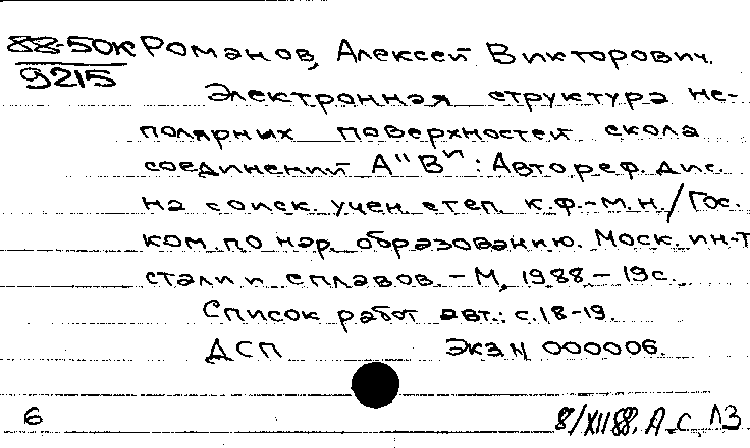 88-50к Романов, Алексей Викторович.
9215
Электронная структура не-
полярных поверхностей скола
соединений А"В : Автореф. дис.
на соиск. учен. степ. к.ф.-м.н./Гос.
ком. по нар. образованию. Моск. ин-т
стали и сплавов. - М, 1988 - 19с.
Список работ авт.: с.18-19.
ДСП Экз N 000006.
6 8/XII 88. А-С